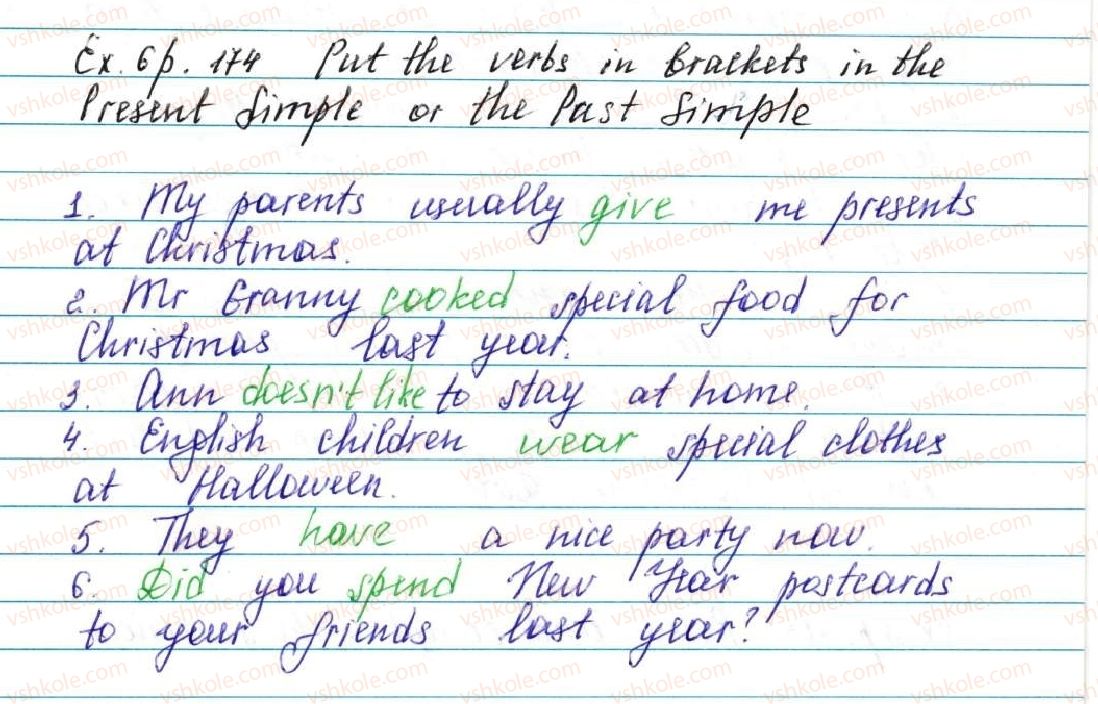 Ex. 6 p. 174 Put the verbs in brackets in the
Present Simple or the Past Simple
1. My parents usually give me presents
at Christmas.
2. Mr Granny cooked special food for
Christmas last year.
3. Ann doesn't like to stay at home.
4. English children wear special clothes
at Halloween.
5. They have a nice party now.
6. Did you spend New Year postcards
to your friends last year?